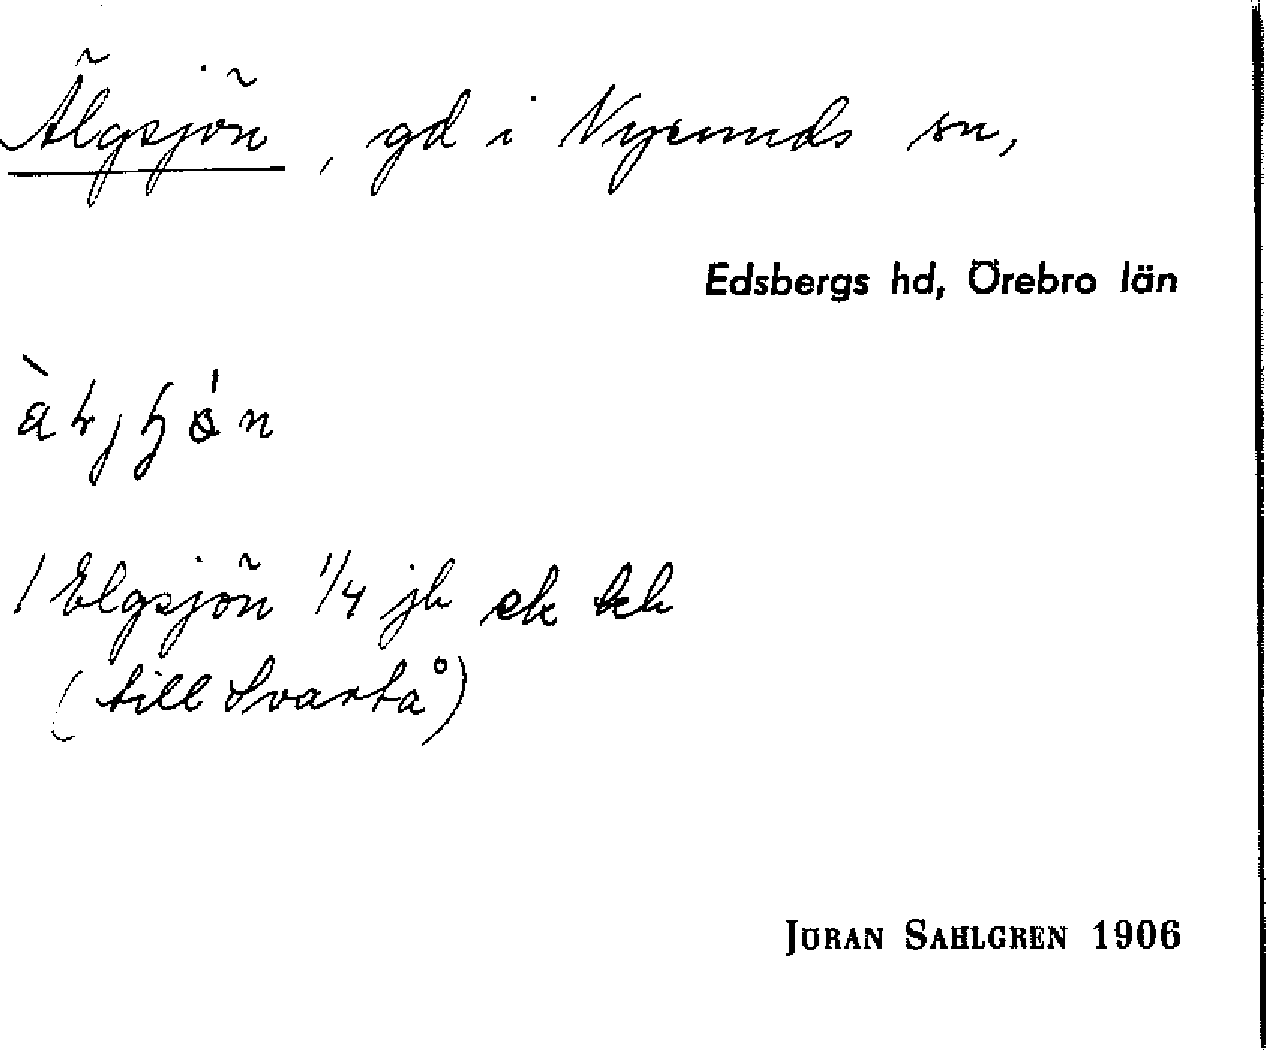 Älgsjön, gd i Nysunds sn,
Edsbergs hd, Örebro län
1 Elgsjön 1/4 jb sk
(till Svartå)
JÖRAN SAHLGREN 1906